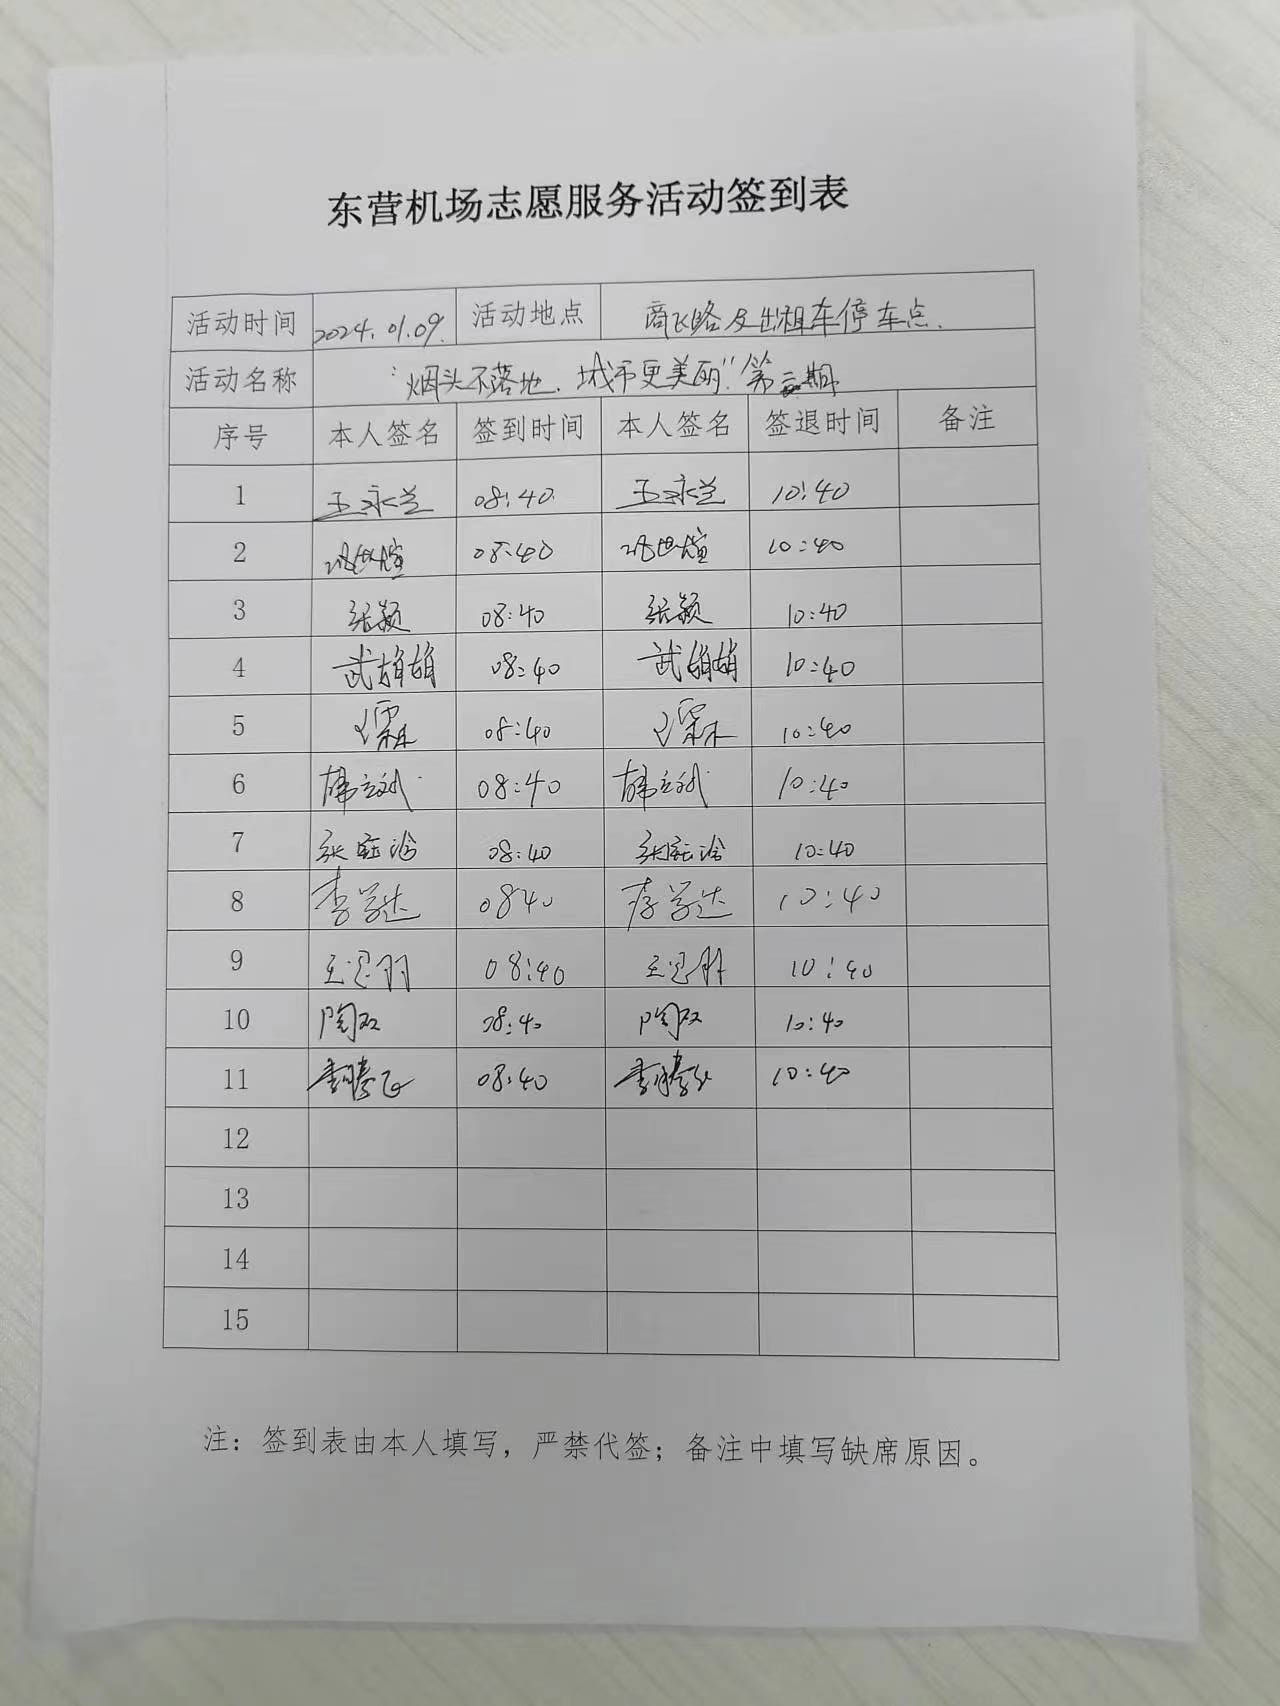 东营机场志愿服务活动签到表
活动时间 2024.01.09. 活动地点 商飞路及出租车停车点.
活动名称 "烟头不落地.城市更美丽".第二期
序号 本人签名 签到时间 本人签名 签退时间 备注
1 王永兰 08:40 王永兰 10:40
2 08:40 10:40
3 张颖 08:40 张颖 10:40
4 武娟娟 08:40 武娟娟 10:40
5 08:40 10:40
6 08:40 10:40
7 张 08:40 张 10:40
8 李学达 0840 李学达 10:40
9 王 08:40 王 10:40
10 陶双 08:40 陶双 10:40
11 李腾飞 08:40 李腾飞 10:40
12
13
14
15
注：签到表由本人填写，严禁代签；备注中填写缺席原因。